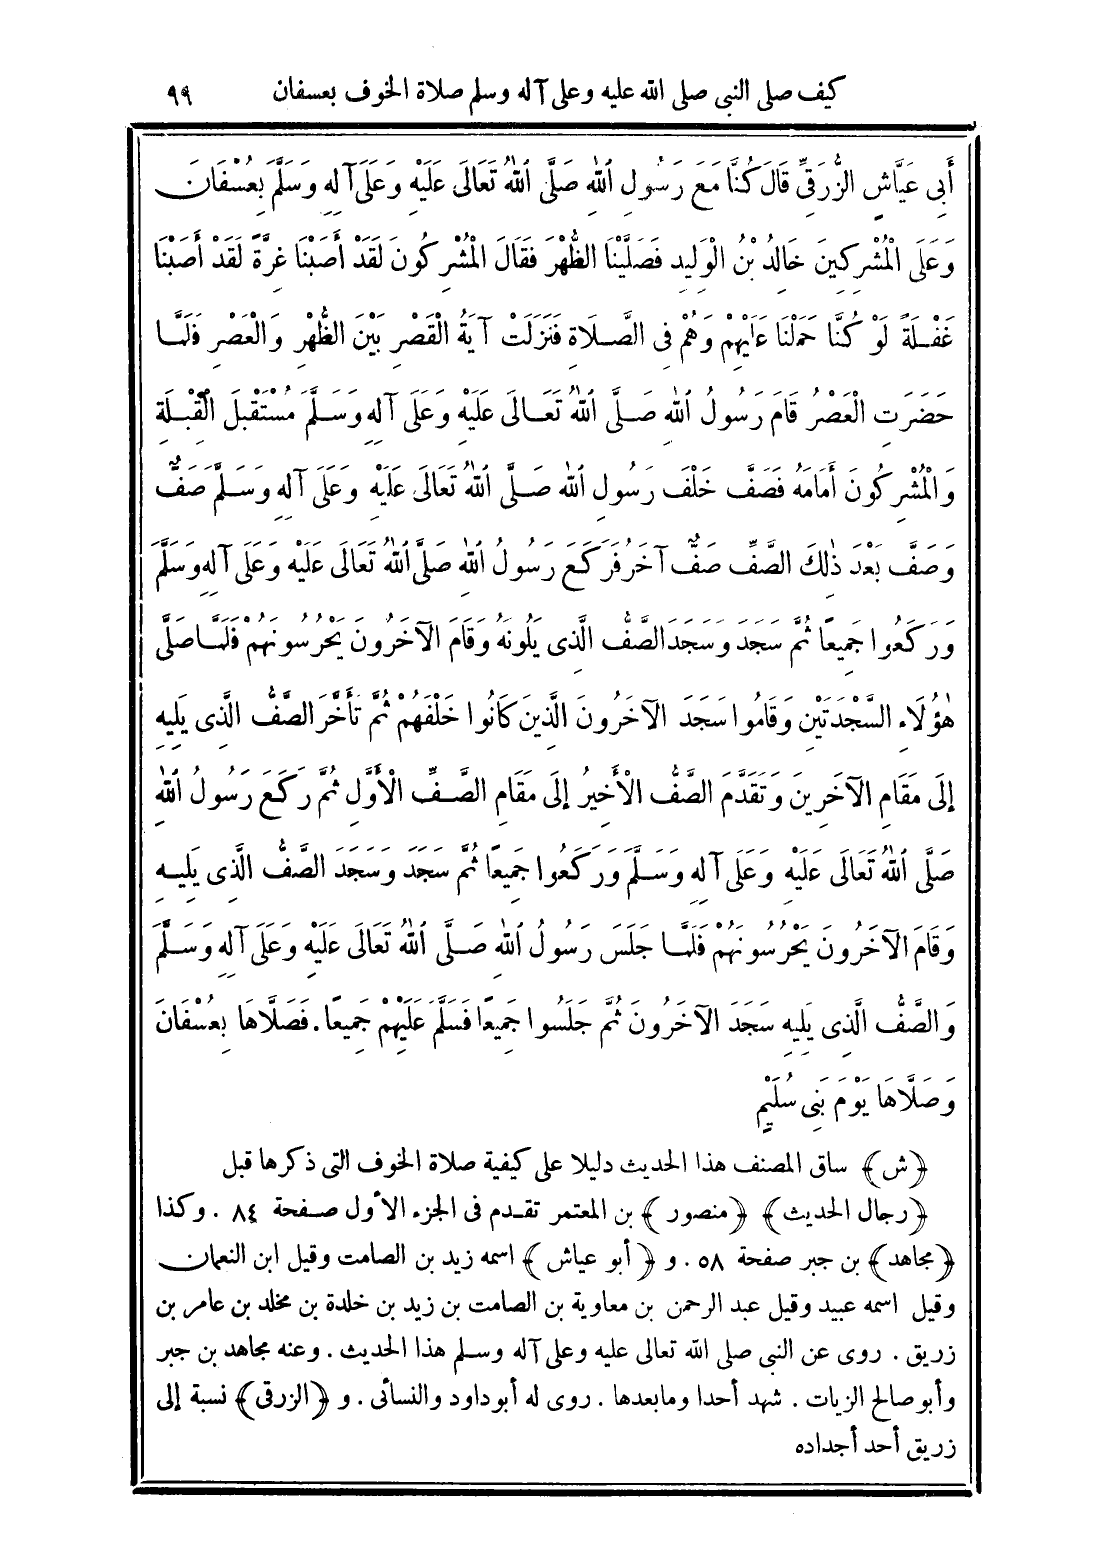 كيف صلى النبى صلى الله عليه وعلى آله وسلم صلاة الخوف بعسفان ٩٩
أَبِى عَيَّاشٍ الزُّرَقِىِّ قَالَ كُنَّا مَعَ رَسُولِ ٱللهِ صَلَّى ٱللهُ تَعَالَى عَلَيْهِ وَعَلَى آلِهِ وَسَلَّمَ بِعُسْفَانَ
وَعَلَى الْمُشْرِكِينَ خَالِدُ بْنُ الْوَلِيدِ فَصَلَّيْنَا الظُّهْرَ فَقَالَ الْمُشْرِكُونَ لَقَدْ أَصَبْنَا غِرَّةً لَقَدْ أَصَبْنَا
غَفْلَةً لَوْ كُنَّا حَمَلْنَا عَلَيْهِمْ وَهُمْ فِى الصَّلَاةِ فَنَزَلَتْ آيَةُ الْقَصْرِ بَيْنَ الظُّهْرِ وَالْعَصْرِ فَلَمَّا
حَضَرَتِ الْعَصْرُ قَامَ رَسُولُ ٱللهِ صَلَّى ٱللهُ تَعَالَى عَلَيْهِ وَعَلَى آلِهِ وَسَلَّمَ مُسْتَقْبِلَ الْقِبْلَةِ
وَالْمُشْرِكُونَ أَمَامَهُ فَصَفَّ خَلْفَ رَسُولِ ٱللهِ صَلَّى ٱللهُ تَعَالَى عَلَيْهِ وَعَلَى آلِهِ وَسَلَّمَ صَفٌّ
وَصَفَّ بَعْدَ ذٰلِكَ الصَّفِّ صَفٌّ آخَرُ فَرَكَعَ رَسُولُ ٱللهِ صَلَّى ٱللهُ تَعَالَى عَلَيْهِ وَعَلَى آلِهِ وَسَلَّمَ
وَرَكَعُوا جَمِيعًا ثُمَّ سَجَدَ وَسَجَدَ الصَّفُّ الَّذِى يَلُونَهُ وَقَامَ الْآخَرُونَ يَحْرُسُونَهُمْ فَلَمَّا صَلَّى
هٰؤُلَاءِ السَّجْدَتَيْنِ وَقَامُوا سَجَدَ الْآخَرُونَ الَّذِينَ كَانُوا خَلْفَهُمْ ثُمَّ تَأَخَّرَ الصَّفُّ الَّذِى يَلِيهِ
إِلَى مَقَامِ الْآخَرِينَ وَتَقَدَّمَ الصَّفُّ الْأَخِيرُ إِلَى مَقَامِ الصَّفِّ الْأَوَّلِ ثُمَّ رَكَعَ رَسُولُ ٱللهِ
صَلَّى ٱللهُ تَعَالَى عَلَيْهِ وَعَلَى آلِهِ وَسَلَّمَ وَرَكَعُوا جَمِيعًا ثُمَّ سَجَدَ وَسَجَدَ الصَّفُّ الَّذِى يَلِيهِ
وَقَامَ الْآخَرُونَ يَحْرُسُونَهُمْ فَلَمَّا جَلَسَ رَسُولُ ٱللهِ صَلَّى ٱللهُ تَعَالَى عَلَيْهِ وَعَلَى آلِهِ وَسَلَّمَ
وَالصَّفُّ الَّذِى يَلِيهِ سَجَدَ الْآخَرُونَ ثُمَّ جَلَسُوا جَمِيعًا فَسَلَّمَ عَلَيْهِمْ جَمِيعًا. فَصَلَّاهَا بِعُسْفَانَ
وَصَلَّاهَا يَوْمَ بَنِى سُلَيْمٍ
﴿ش﴾ ساق المصنف هذا الحديث دليلا على كيفية صلاة الخوف التى ذكرها قبل
﴿رجال الحديث﴾ ﴿منصور﴾ بن المعتمر تقدم فى الجزء الأول صفحة ٨٤. وكذا
﴿مجاهد﴾ بن جبر صفحة ٥٨. و ﴿أبو عياش﴾ اسمه زيد بن الصامت وقيل ابن النعمان
وقيل اسمه عبيد وقيل عبد الرحمن بن معاوية بن الصامت بن زيد بن خلدة بن مخلد بن عامر بن
زريق. روى عن النبى صلى الله تعالى عليه وعلى آله وسلم هذا الحديث. وعنه مجاهد بن جبر
وأبو صالح الزيات. شهد أحدا ومابعدها. روى له أبوداود والنسائى. و ﴿الزرقى﴾ نسبة إلى
زريق أحد أجداده